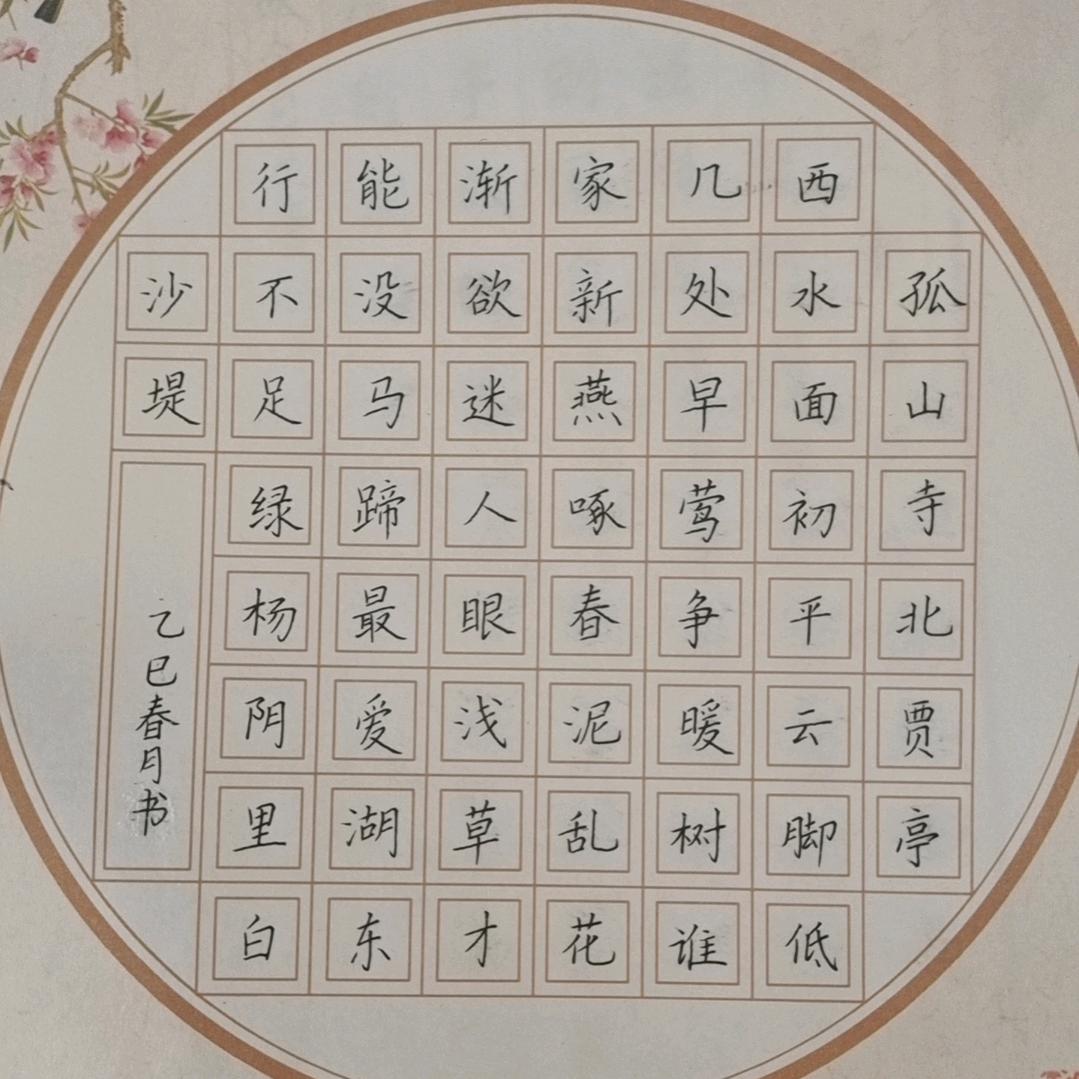 孤山寺北贾亭
西水面初平云脚低
几处早莺争暖树谁
家新燕啄春泥乱花
渐欲迷人眼浅草才
能没马蹄最爱湖东
行不足绿杨阴里白
沙堤
乙巳春月书